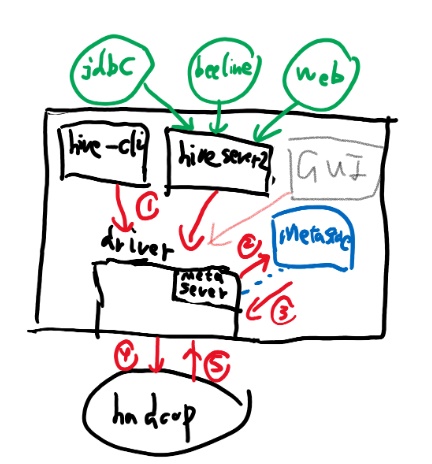 jdbc
beeline
web
hive-cli
hiveserver2
GUI
①
driver
②
Metastore
meta
server
③
④
⑤
hadoop